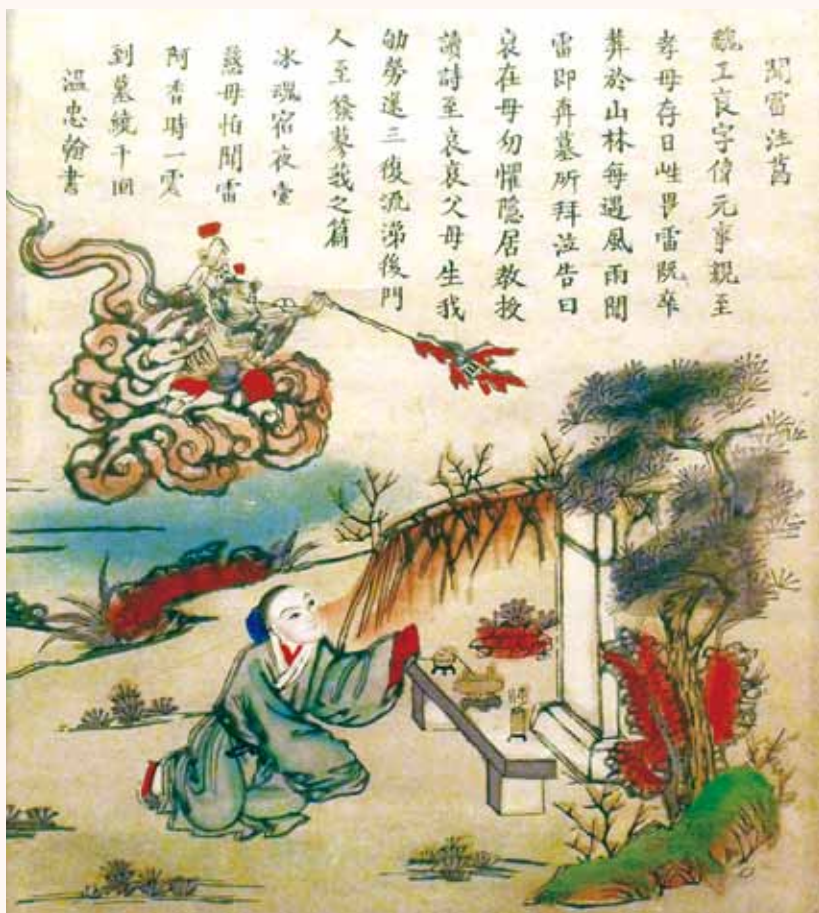 聞雷泣墓
魏王裒字偉元事親至
孝母存日性畏雷既卒
葬於山林每遇風雨聞
雷即奔墓所拜泣告曰
裒在母勿懼隱居教授
讀詩至哀哀父母生我
劬勞遂三復流涕後門
人至廢蓼莪之篇
冰魂宿夜臺
慈母怕聞雷
阿香時一震
到墓繞千回
溫忠翰書